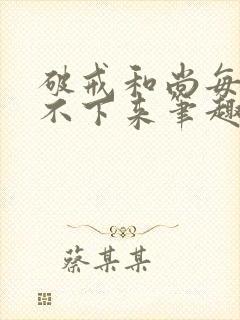 破戒和尚每
不下来笔趣
蔡某某